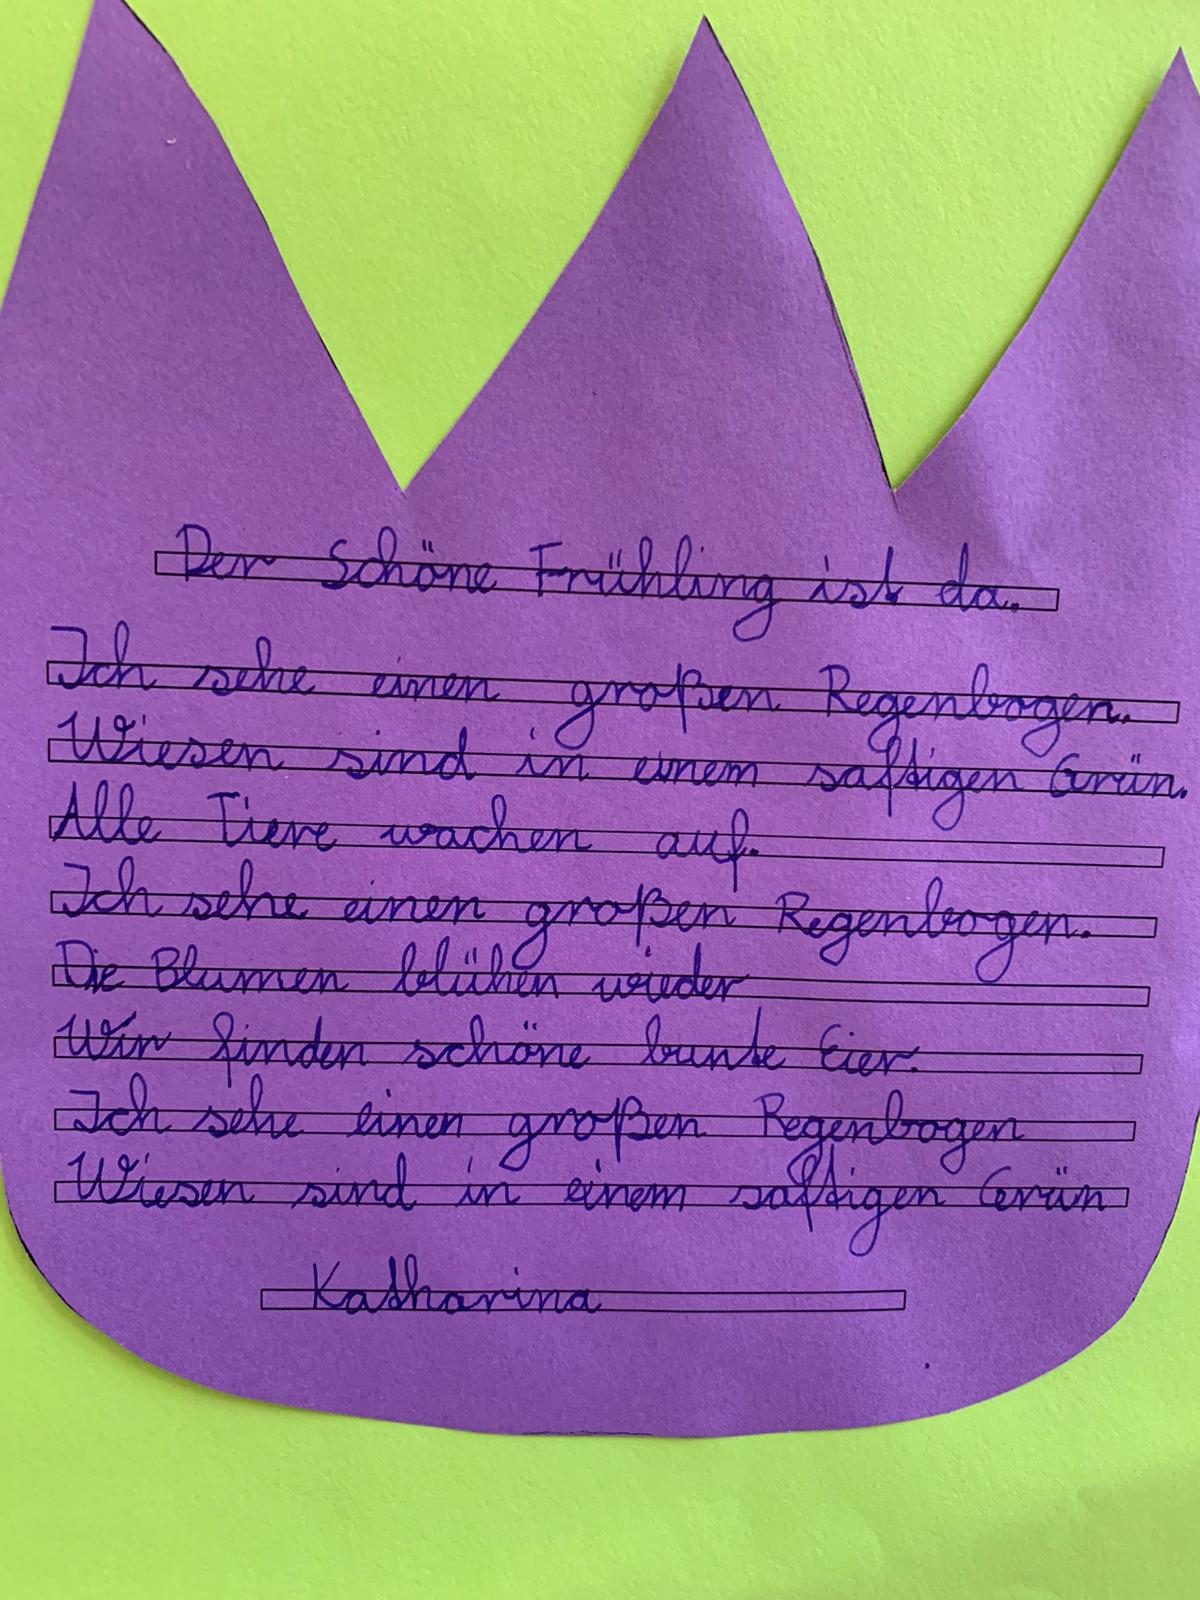 Der Schöne Frühling ist da.
Ich sehe einen großen Regenbogen.
Wiesen sind in einem saftigen Grün.
Alle Tiere wachen auf.
Ich sehe einen großen Regenbogen.
Die Blumen blühen wieder
Wir finden schöne bunte Eier.
Ich sehe einen großen Regenbogen
Wiesen sind in einem saftigen Grün
Katharina